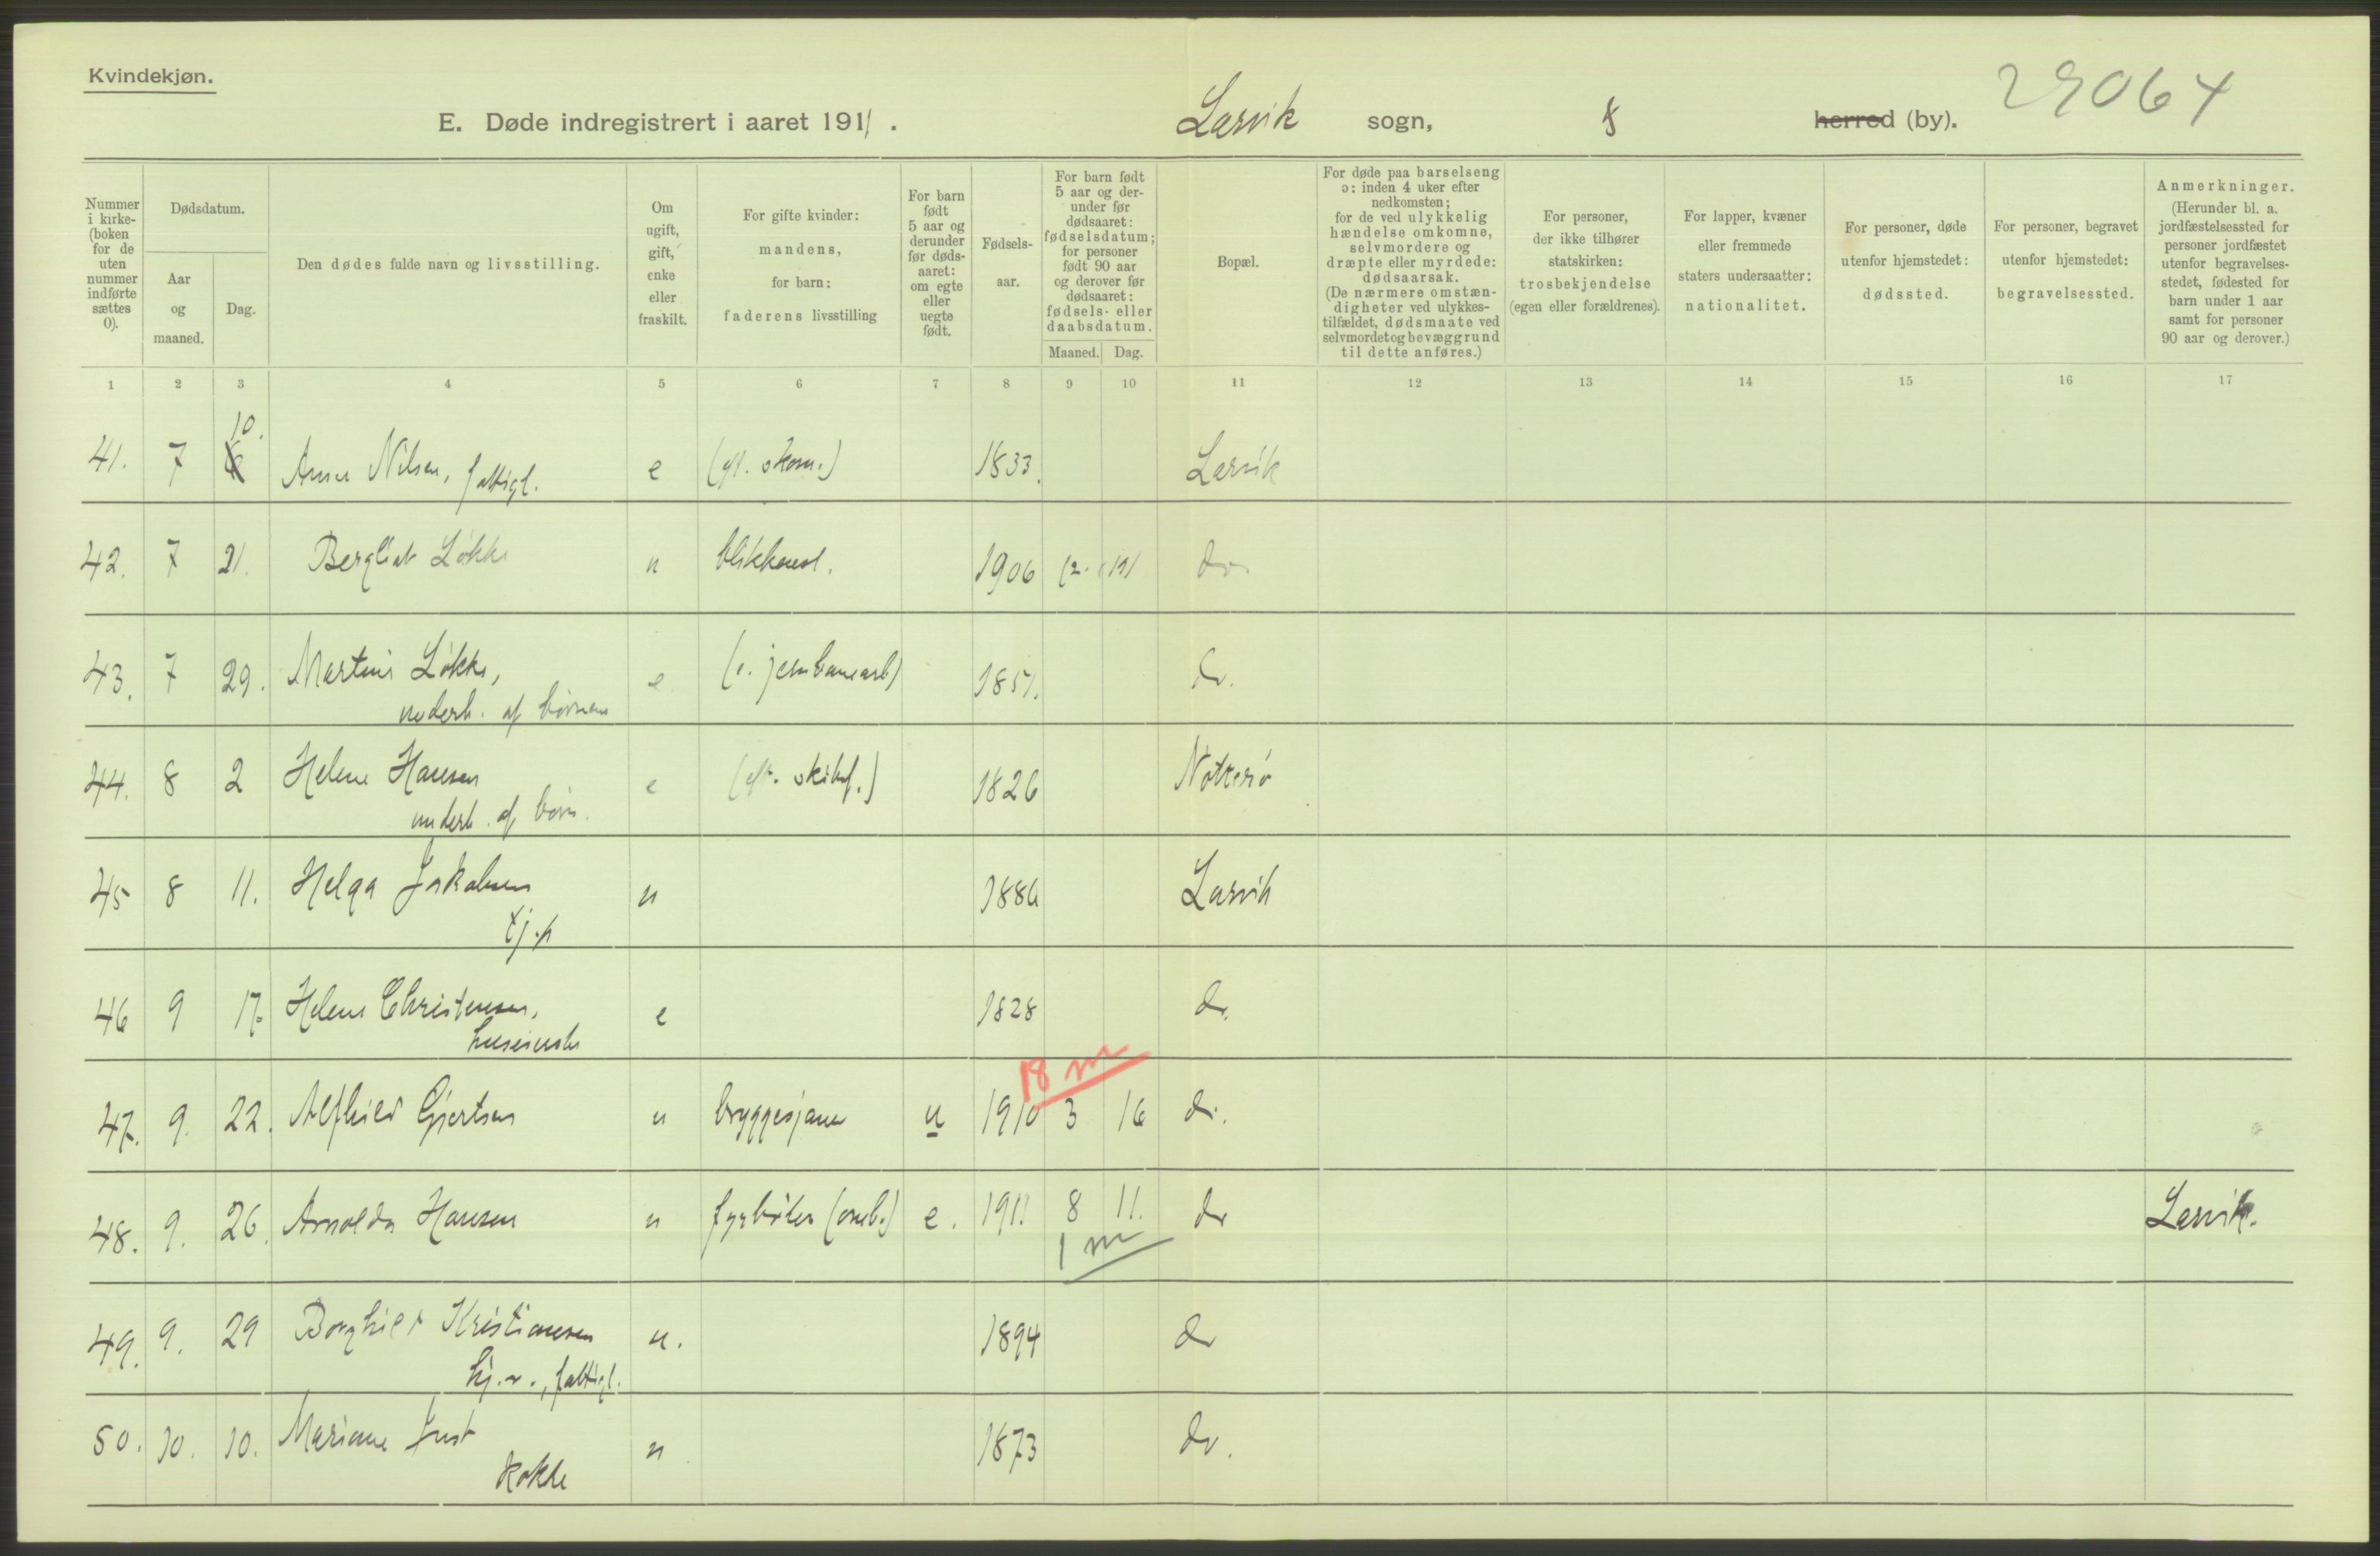 Kvindekjøn.
29064
E. Døde indregistrert i aaret 1911. Larvik sogn, herred (by).
Nummer i kirke- (boken for de uten nummer indførte sættes 0).
Dødsdatum.
Aar og maaned.
Dag.
Den dødes fulde navn og livsstilling.
Om ugift, gift, enke eller fraskilt.
For gifte kvinder: mandens, for barn: faderens livsstilling
For barn født 5 aar og derunder før døds- aaret: om egte eller uegte født.
Fødsels- aar.
For barn født 5 aar og der- under før dødsaaret: fødselsdatum; for personer født 90 aar og derover før dødsaaret: fødsels- eller daabsdatum.
Maaned. Dag.
Bopæl.
For døde paa barselseng ɔ: inden 4 uker efter nedkomsten; for de ved ulykkelig hændelse omkomne, selvmordere og dræpte eller myrdede: dødsaarsak. (De nærmere omstæn- digheter ved ulykkes- tilfældet, dødsmaate ved selvmordet og bevæggrund til dette anføres.)
For personer, der ikke tilhører statskirken: trosbekjendelse (egen eller forældrenes).
For lapper, kvæner eller fremmede staters undersaatter: nationalitet.
For personer, døde utenfor hjemstedet: dødssted.
For personer, begravet utenfor hjemstedet: begravelsessted.
Anmerkninger. (Herunder bl. a. jordfæstelsessted for personer jordfæstet utenfor begravelses- stedet, fødested for barn under 1 aar samt for personer 90 aar og derover.)
1 2 3 4 5 6 7 8 9 10 11 12 13 14 15 16 17
10.
41. 7 Anne Nilsen, fattigl. e 1833. Larvik
42. 7 21. Bergliot Løkke u blikkensl. 1906 do.
43. 7 29. Martine Løkke, e (e. jernbanearb) 1851. do.
underh. af børnene
44. 8 2 Helene Hansen e (eft. skibsf.) 1826 Nøtterø
underh. af børn.
45 8 11. Helga Jakobsen u 1886 Larvik
tj.p
46 9 17. Helene Christensen, e 1828 do.
18 m
47. 9. 22. Alfhild Gjertsen u bryggesjauer u 1910 3 16 do.
48. 9. 26. Arnolda Hansen u fyrbøter (omb.) e. 1911 8 11. do Larvik.
1 m
49. 9. 29 Borghild Kristiansen u. 1894 do
hj.v., fattigl.
50. 10. 10. Mariane Just u 1873 do.
Kokke